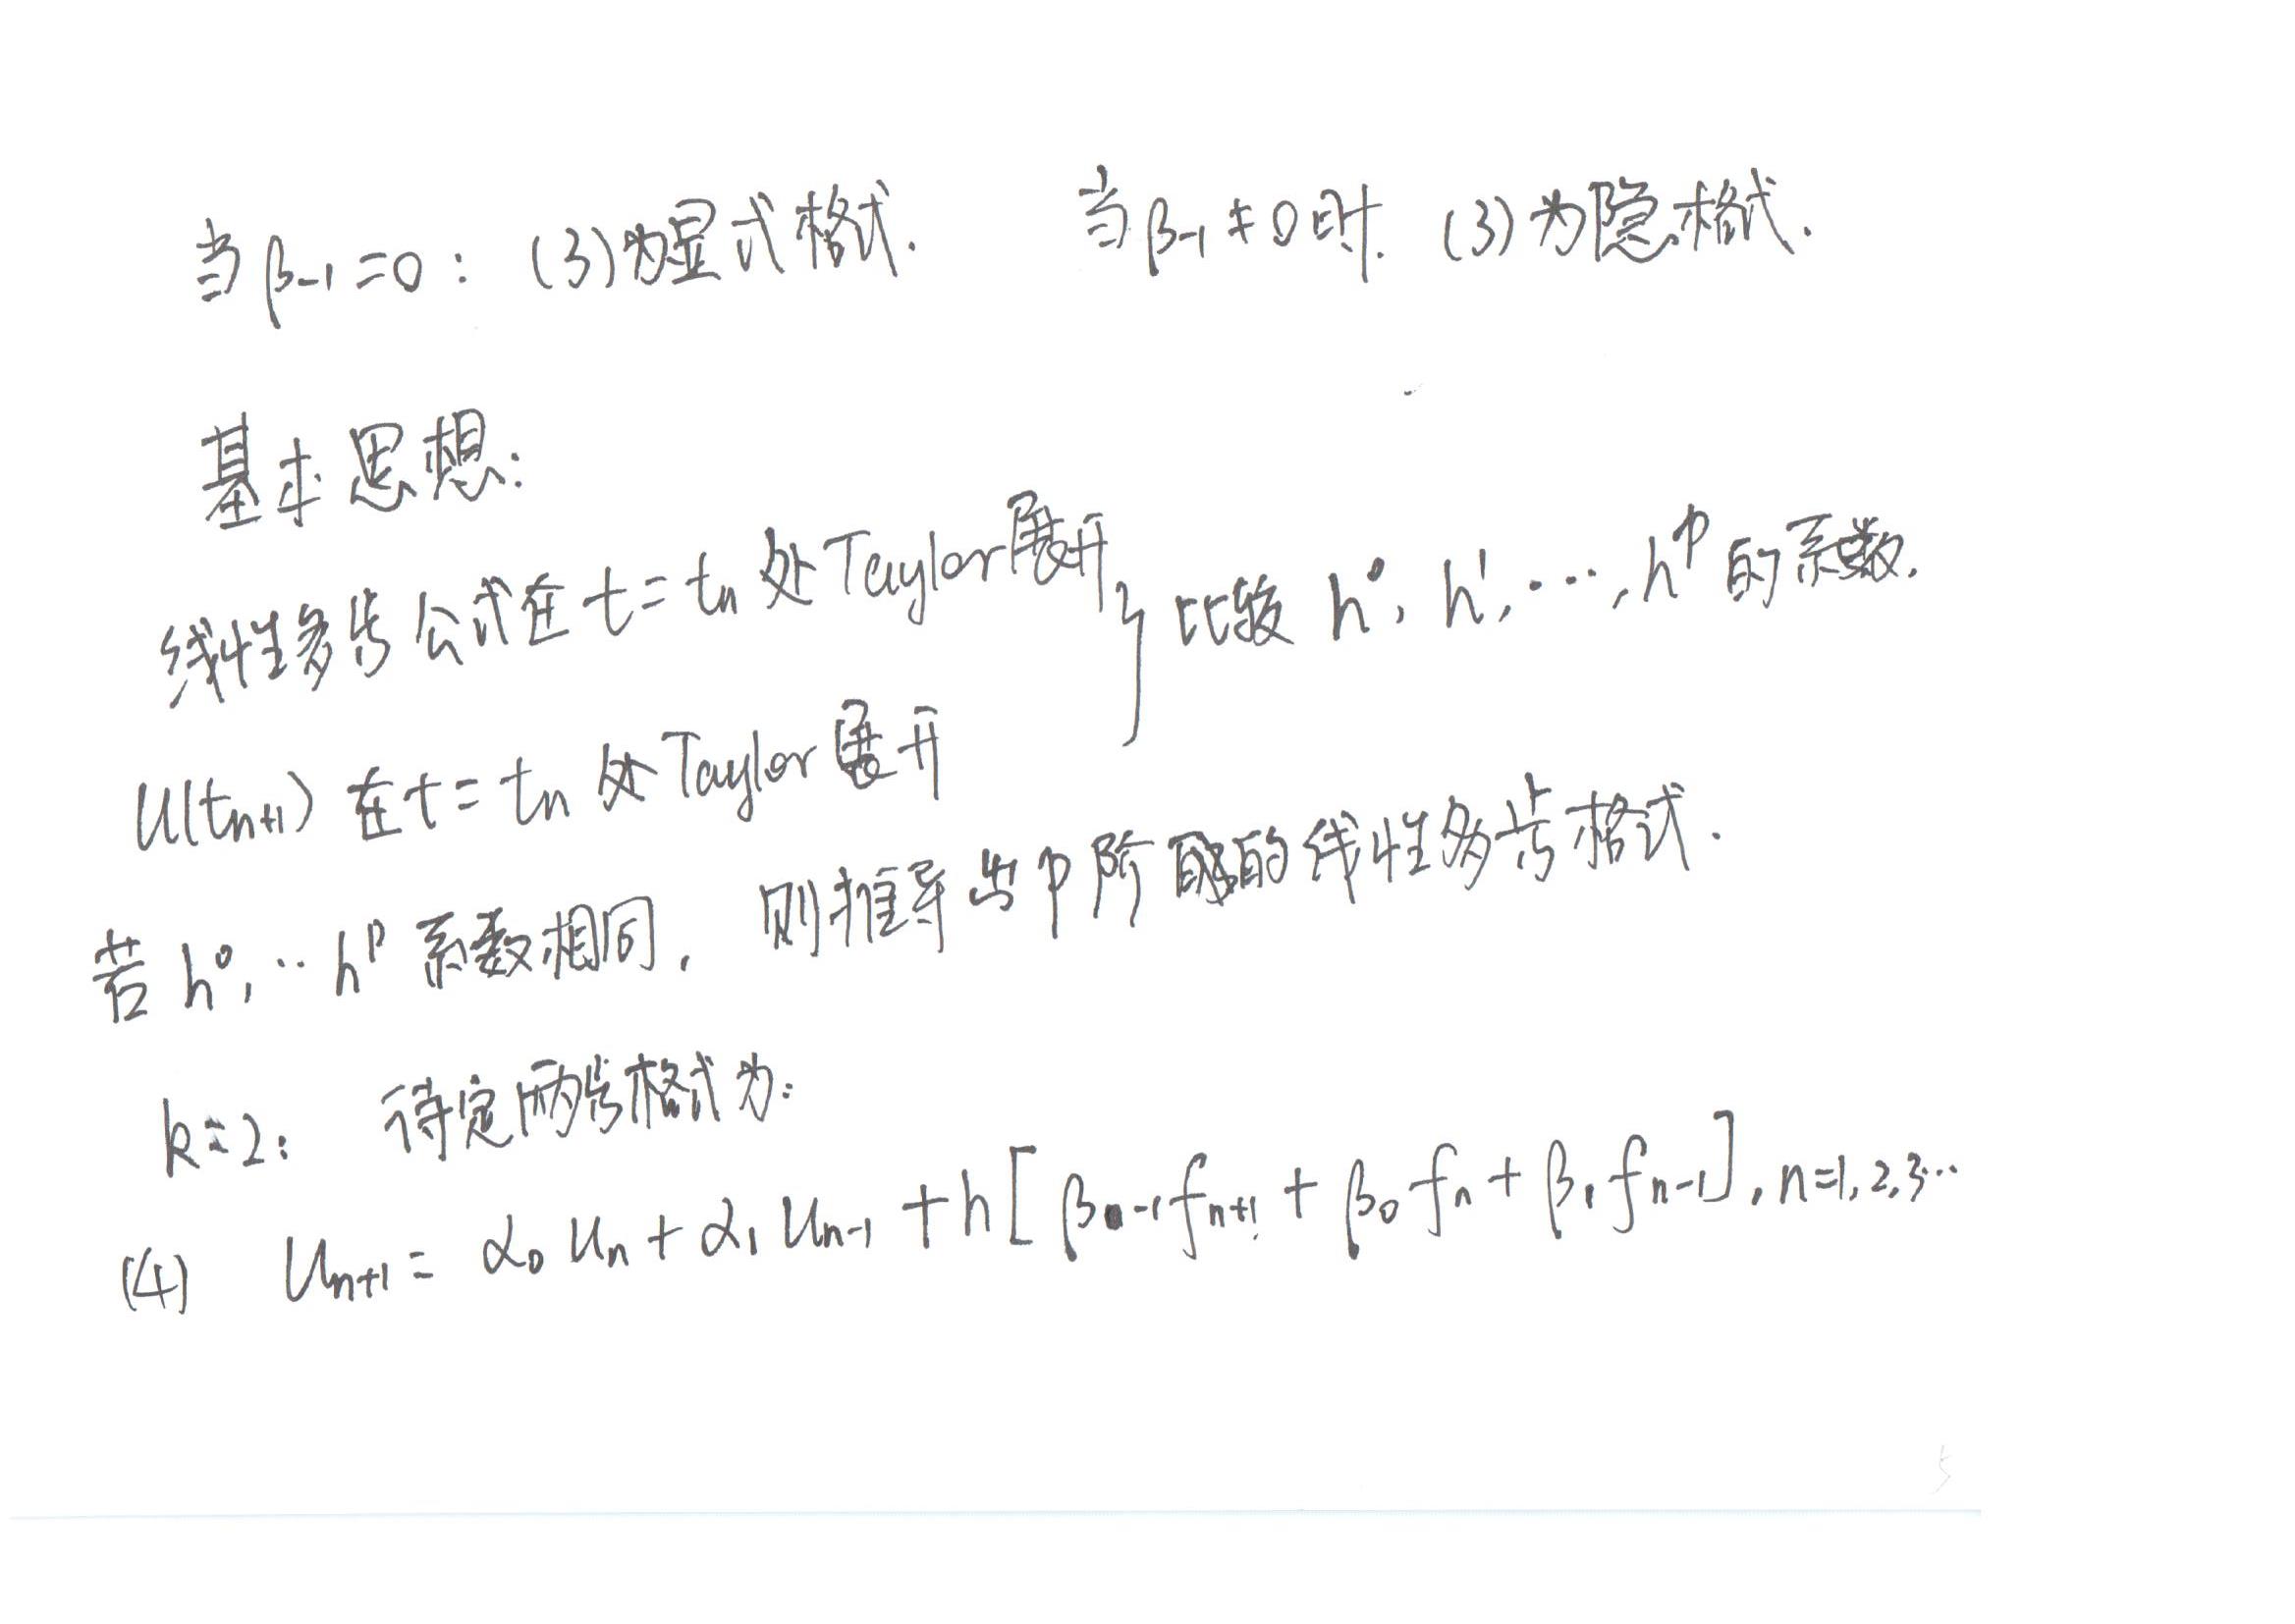 当β₋₁=0: (3)为显式格式. 当β₋₁≠0时. (3)为隐格式.
基本思想:
线性多步公式在t=tₙ处Taylor展开 } 比较 h⁰, h¹, ⋯, hᵖ 的系数.
U(tₙ₊₁) 在t=tₙ处Taylor展开
若 h⁰,⋯hᵖ 系数相同, 则推导出p阶的线性多步格式.
k=2: 待定两步格式为:
(4) Uₙ₊₁= α₀Uₙ+α₁Uₙ₋₁+h[β₋₁fₙ₊₁+β₀fₙ+β₁fₙ₋₁], n=1,2,3⋯